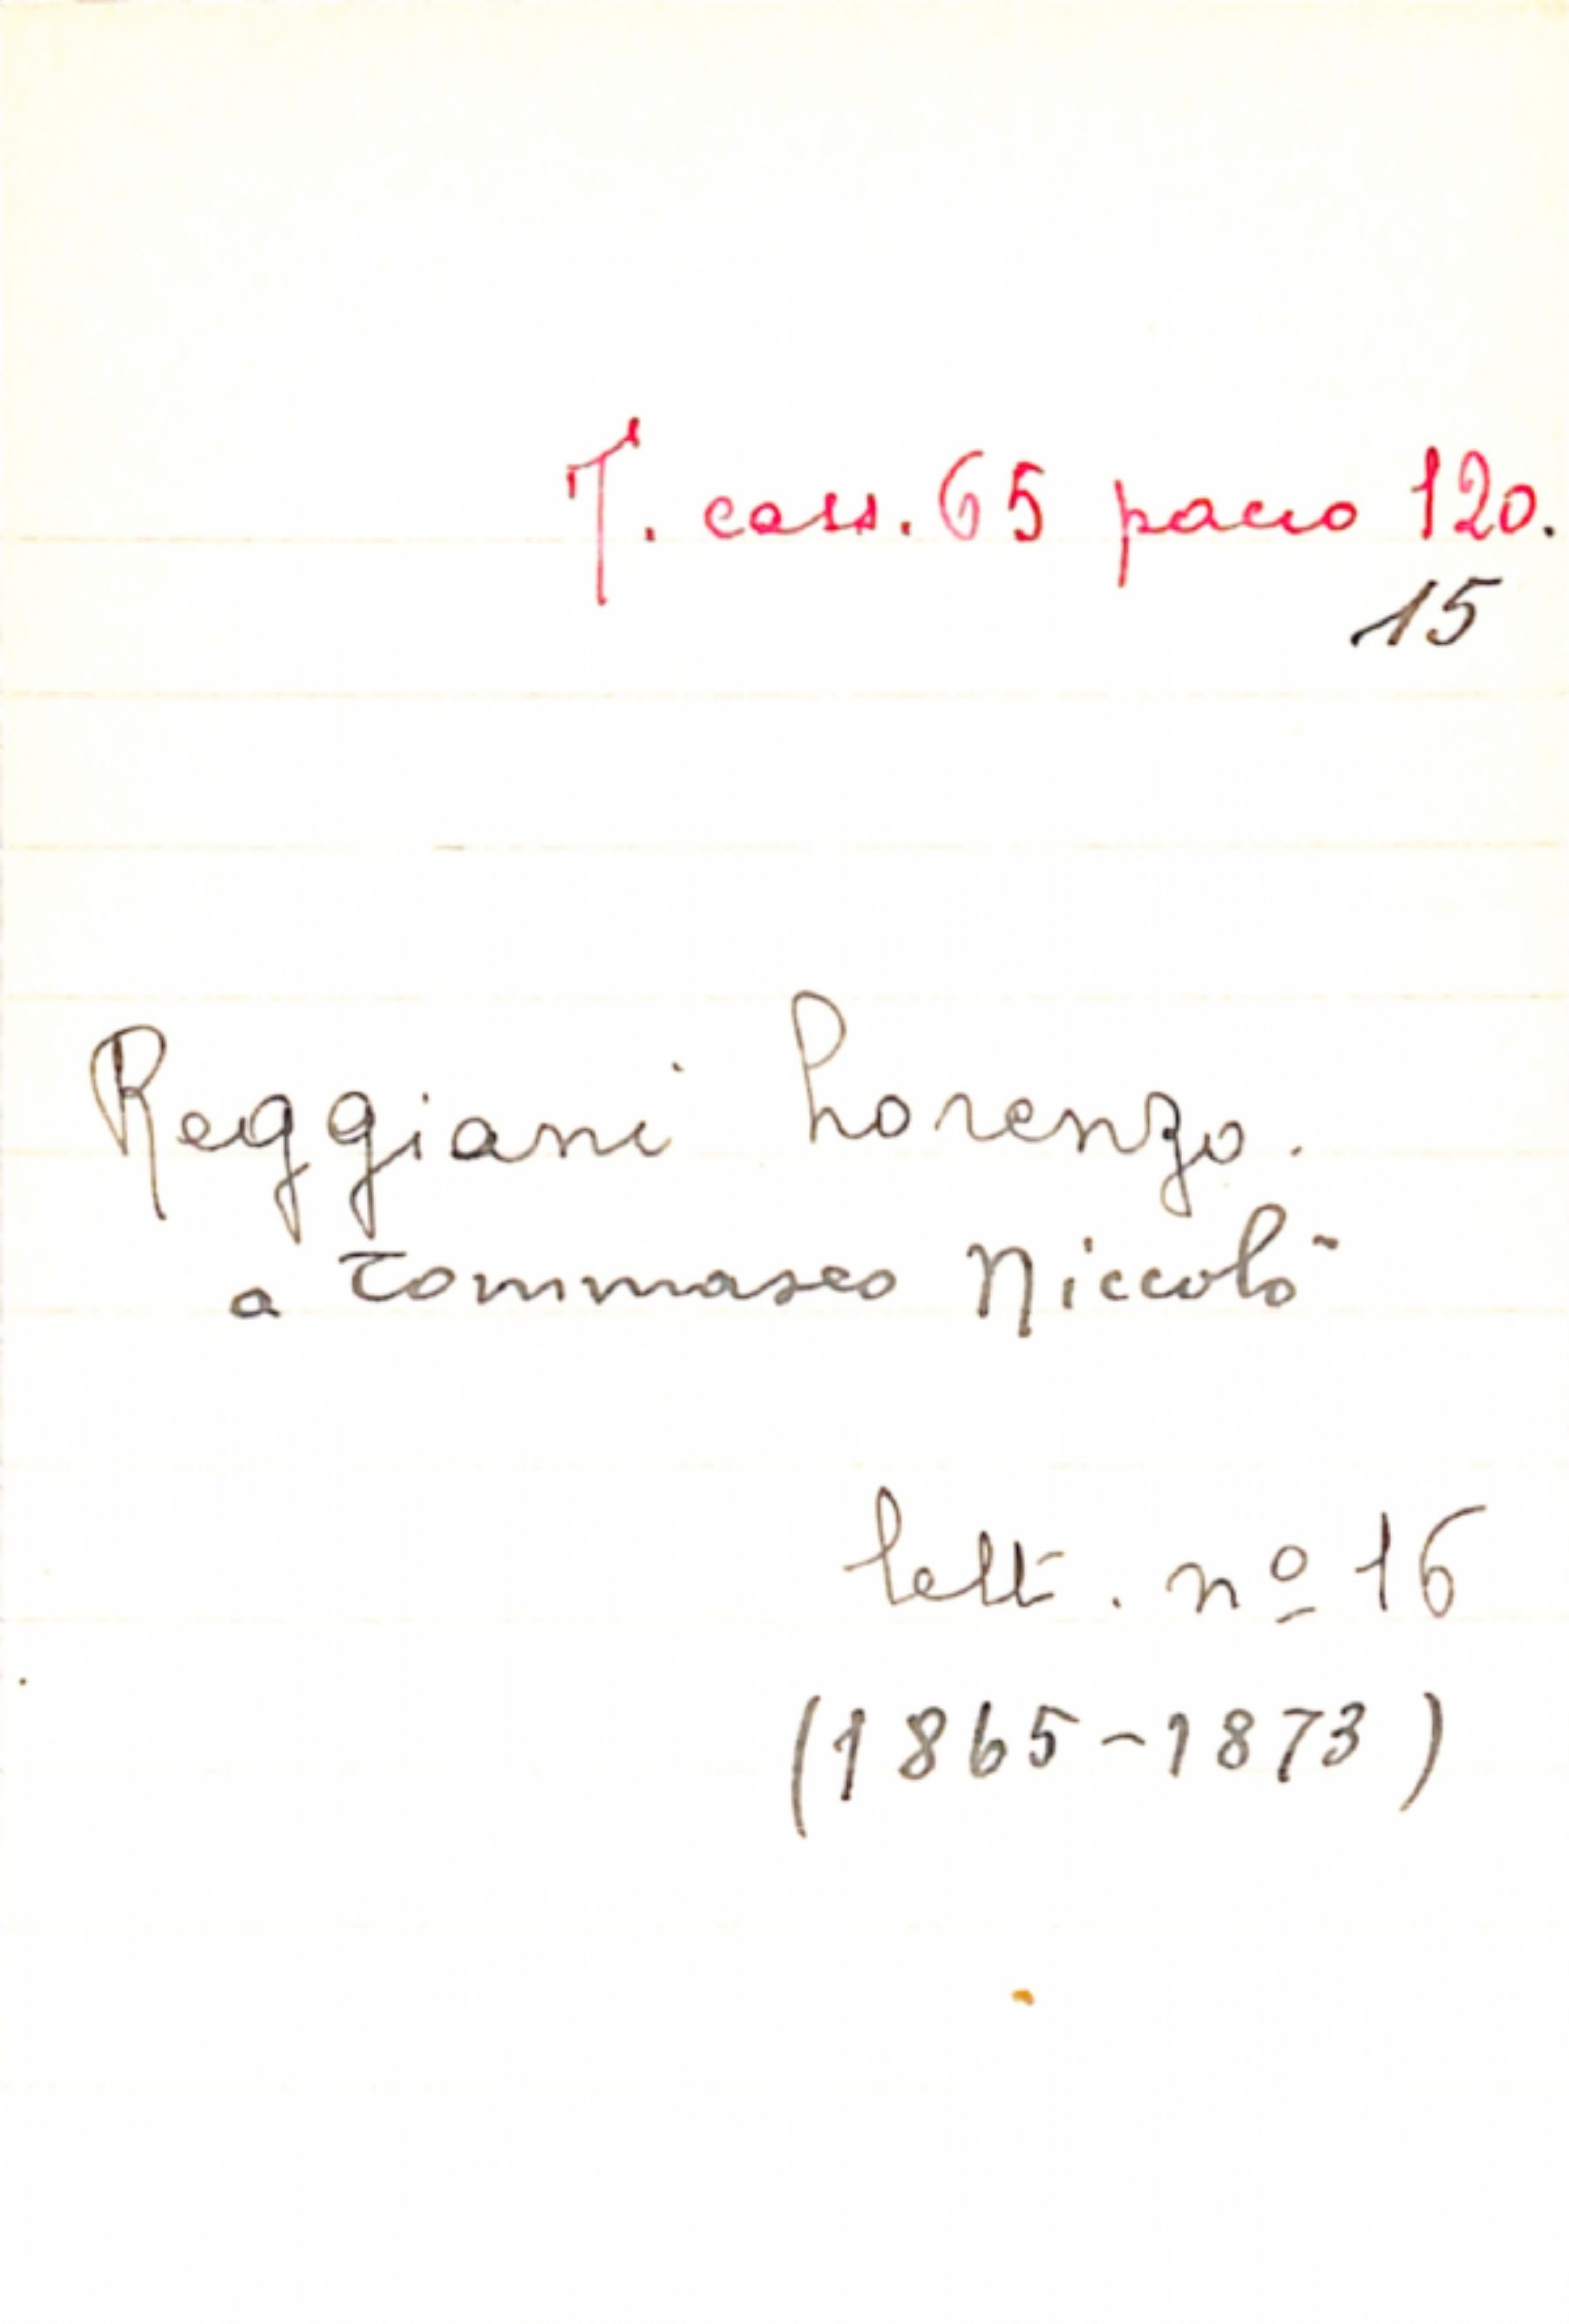 T. cass. 65 pacco 120.
15
Reggiani Lorenzo.
a Tommaseo Niccolò
lett. nº 16
(1865-1873)